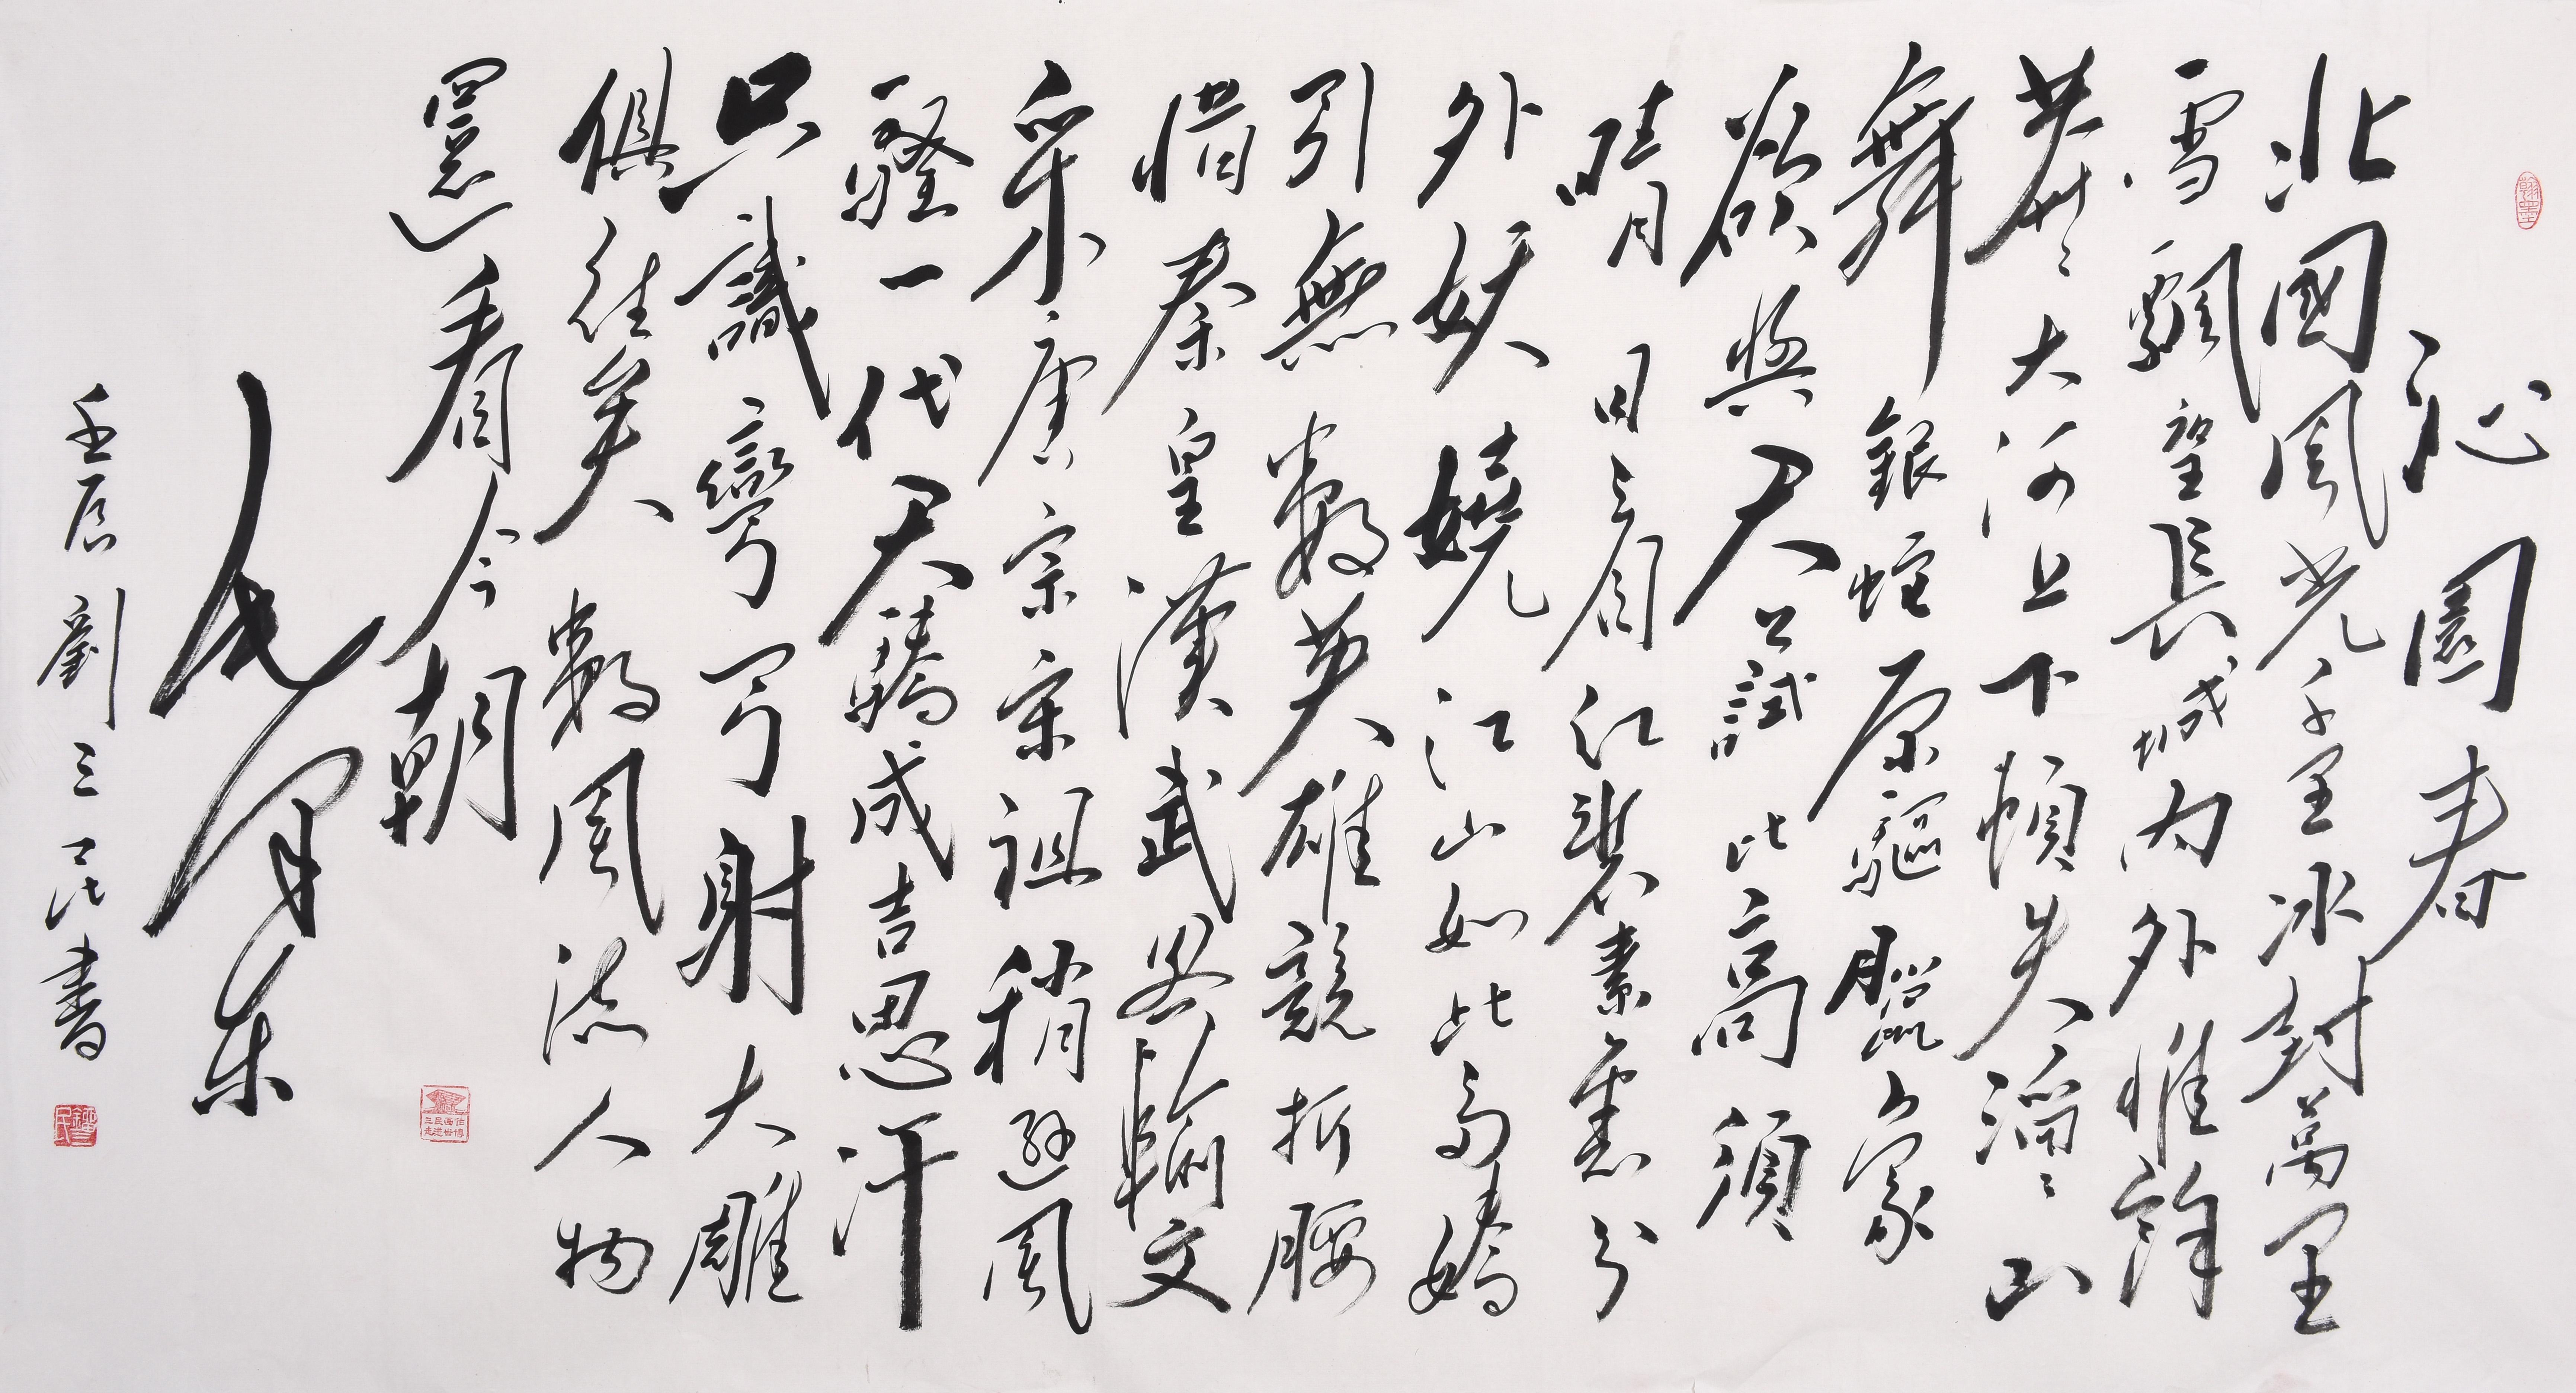 沁園春
北國風光千里冰封萬里
雪飄望長城內外惟餘
莽々大河上下頓失滔々山
舞銀蛇原驅臘象
欲與天公試比高須
晴日看紅裝素裹分
外妖嬈江山如此多嬌
引無數英雄競折腰
惜秦皇漢武略輸文
采唐宗宋祖稍遜風
騷一代天驕成吉思汗
只識彎弓射大雕
俱往矣數風流人物
還看今朝
毛澤東
壬辰劉三民書
翰墨